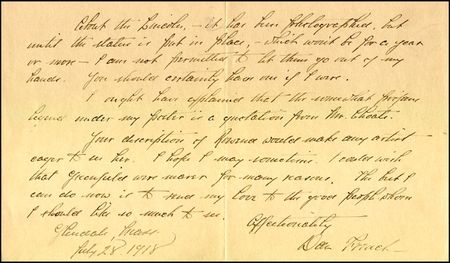 About the Lincoln, - it has been photographed, but
until the statue is put in place, - which won't be for a year
or more - I am not permitted to let them go out of my
hands. You should certainly have one if I were.
I ought have explained that the somewhat profane
legend under my poster is a quotation from Mr. Choate.
Your description of would make any artist
eager to see her. I hope I may sometime. I could wish
that Greenfield were nearer for many reasons. The best I
can do now is to send my love to the good people whom
I should like so much to see.
Affectionately
Dan French
Glendale, Mass.
July 28 1918